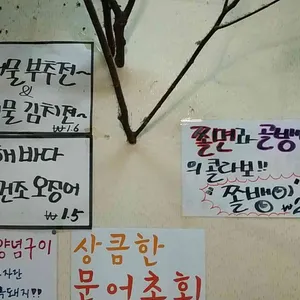 물 부추전~
&
물 김치전~
₩1.6
해바다
건조 오징어
₩1.5
양념구이
쫄면과 골뱅
의 콜라보!!
쫄뱅이
상큼한
문어초회